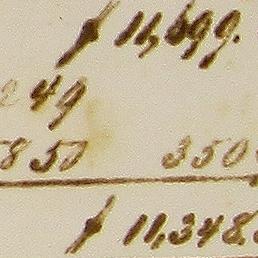 $ 11,699.
2 49
8 50 350
$ 11,348.